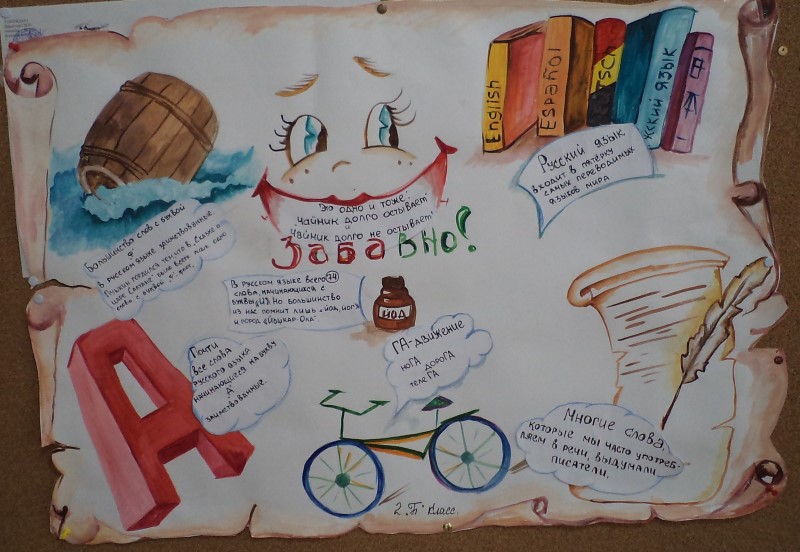 English
Español
РУССКИЙ ЯЗЫК
Русский язык
входит в пятёрку
самых переводимых
языков мира
"Это одно и тоже:
"чайник долго остывает"
и
"чайник долго не остывает"
Забавно!
Большинство слов с буквой
"Ф"
в русском языке заимствованные.
Пушкин гордился тем, что в "Сказке о
царе Салтане" было всего лишь одно
слово с буквой "ф" -
В русском языке всего 74
слова, начинающиеся с
буквы "Й". Но большинство
из нас помнит лишь "йод, йога
и город "Йошкар-Ола".
ЙОД
ГА-движение
ноГА дороГА
телеГА
Почти
все слова
русского языка
начинающиеся на букву
"А"
заимствованные.
Многие слова
которые мы часто употреб-
ляем в речи, выдумали
писатели.
2 "Б" класс